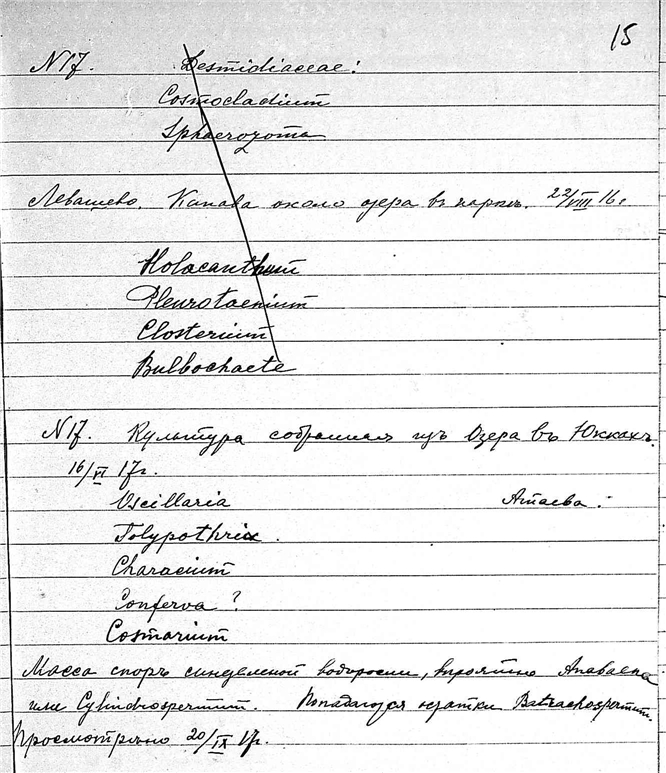 15
N 17. Desmidiaceae:
Cosmocladium
Sphaerozoma
Левашево. Канава около озера въ паркѣ. 22/VIII 16 г.
Holacanthum
Pleurotaenium
Closterium
Bulbochaete
N 17. Культура собранная изъ Озера въ Юккахъ.
16/VI 17 г.
Oscillaria Amaeba:
Tolypothrix.
Characium
Conferva?
Cosmarium
Масса споръ синезеленой водоросли, вѣроятно Anabaena
или Cylindrospermum. Попадаются Batrachospermum.
Просмотрѣно 20/IX 17 г.